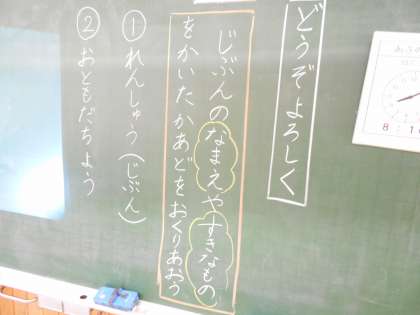 どうぞよろしく
じぶんのなまえやすきなもの
をかいたかあどをおくりあおう
①れんしゅう(じぶん)
②おともだちよう